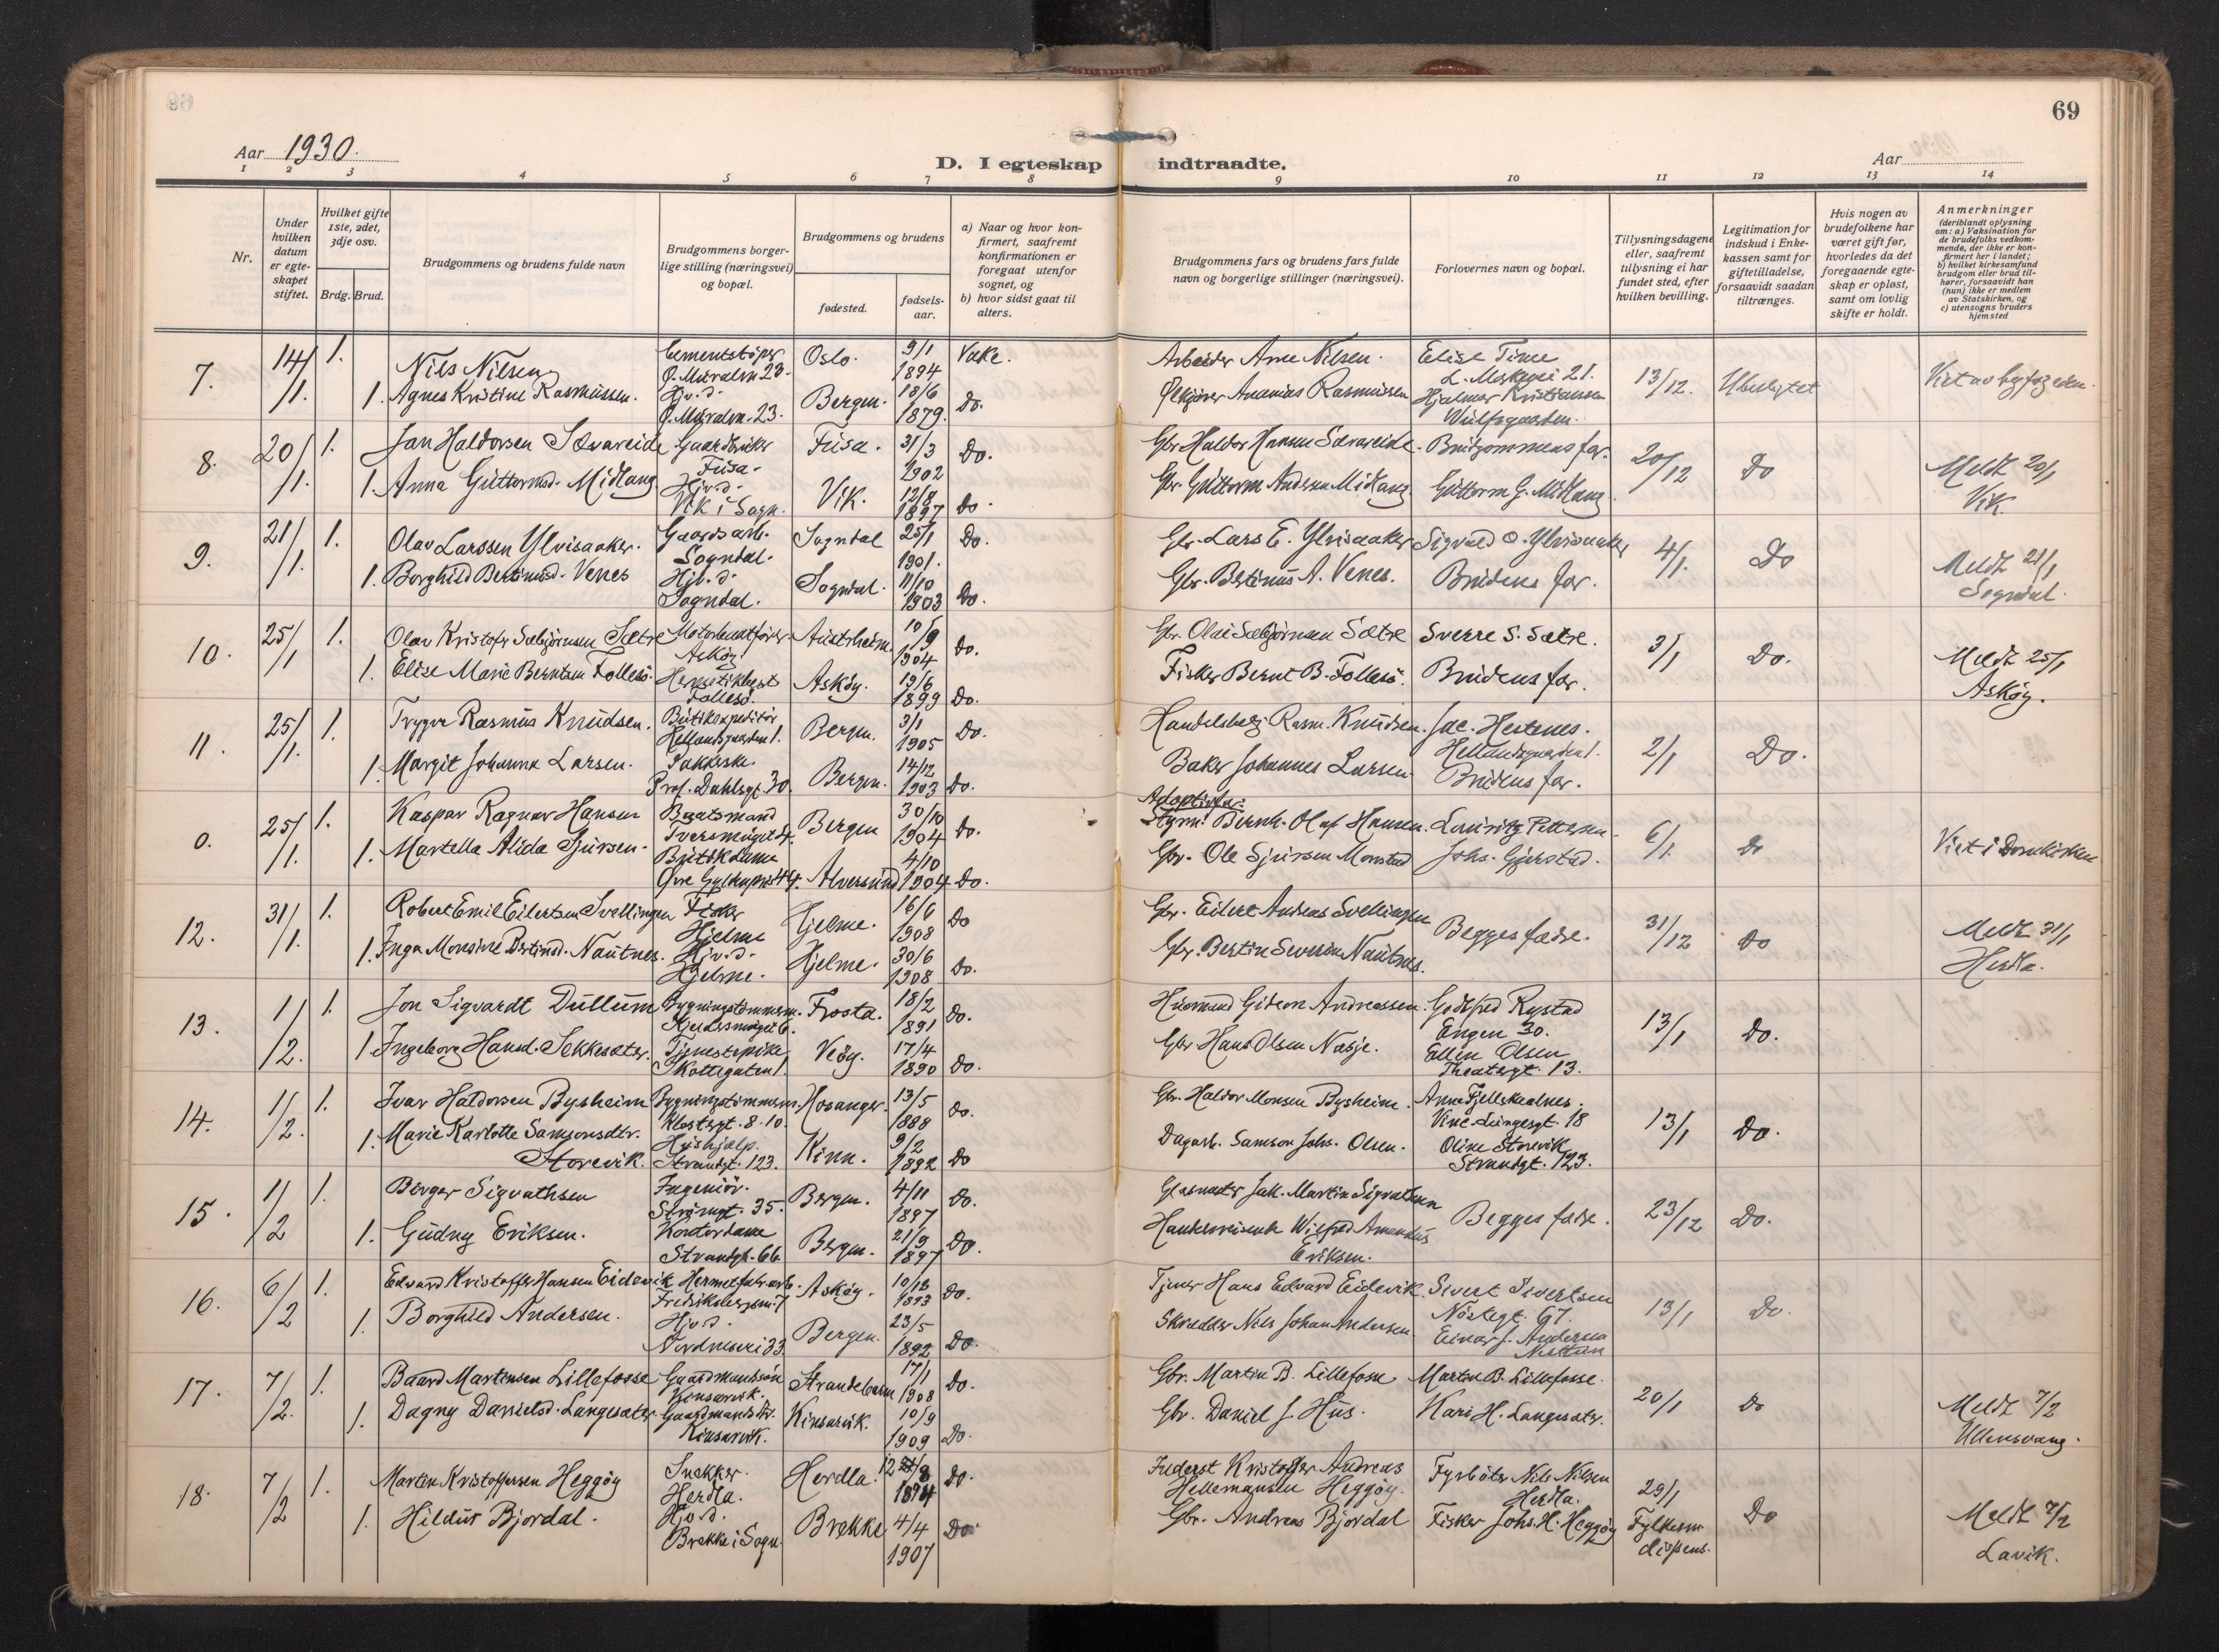 69
Aar 1930.
D. I egteskap indtraadte.
Aar
1 2 3 4 5 6 7 8 9 10 11 12 13 14
Nr.
Under hvilken datum er egteskapet stiftet.
Hvilket gifte 1ste, 2det, 3dje osv.
Brdg. Brud.
Brudgommens og brudens fulde navn
Brudgommens borgerlige stilling (næringsvei) og bopæl.
Brudgommens og brudens
fødested.
fødselsaar.
a) Naar og hvor konfirmert, saafremt konfirmationen er foregaat utenfor sognet, og
b) hvor sidst gaat til alters.
Brudgommens fars og brudens fars fulde navn og borgerlige stillinger (næringsvei).
Forlovernes navn og bopæl.
Tillysningsdagene eller, saafremt tillysning ei har fundet sted, efter hvilken bevilling.
Legitimation for indskud i Enkekassen samt for giftetilladelse, forsaavidt saadan tiltrænges.
Hvis nogen av brudefolkene har været gift før, hvorledes da det foregaaende egteskap er opløst, samt om lovlig skifte er holdt.
Anmerkninger
(deriblandt oplysning om: a) Vaksination for de brudefolks vedkommende, der ikke er konfirmert her i landet; b) hvilket kirkesamfund brudgom eller brud tilhører, forsaavidt han (hun) ikke er medlem av Statskirken, og c) utensogns bruders hjemsted
7. 14/1. 1. Nils Nilsen Cementstöper Ö. Muralm. 23. Oslo. 9/1 1894 Vake. Arbeider Arne Nilsen. Elise Time L. Markevei 21. 13/12. Ubeslegtet Viet av byfogden.
1. Agnes Kristine Rasmussen. Hjv. d. Ö. Muralm. 23. Bergen. 18/6 1879. Do. Ananias Rasmussen Hjalmar Kristiansen Wulfsgaarden.
8. 20/1. 1. Jan Haldorsen Sævareide Gaardbruker Fusa. Fusa. 31/3 1902 Do. Gbr. Haldor Hansen Sævareide. Brudgommens far. 20/12 Do Meldt 20/1 Vik.
1. Anna Guttormsd. Midlang Hjv. d. Vik i Sogn. Vik. 12/8 1897 Do. Gbr. Guttorm Andersen Midlang. Guttorm G. Midlang.
9. 21/1. 1. Olav Larssen Ylvisaaker. Gaardsarb. Sogndal. Sogndal 25/1 1901. Do. Gbr. Lars E. Ylvisaaker Sigvald O. Ylvisaaker 4/1. Do Meldt 21/1 Sogndal.
1. Borghild Bertinusd. Venes Hjv. d. Sogndal. Sogndal. 11/10 1903 Do. Gbr. Bertinus A. Venes. Brudens far.
10. 25/1 1. Olav Kristofr Sæbjørnsen Sætre Motorbaatförer Askøy Austrheim. 10/9 1904 Do. Gbr. Olai Sæbjørnsen Sætre Sverre S. Sætre. 3/1 Do. Meldt 25/1 Askøy.
1. Elise Marie Berntsen Follesö. Follesö. Askøy. 19/6 1899 Do. Fisker Bernt B. Follesö. Brudens far.
11. 25/1. 1. Trygve Rasmus Knudsen. Butikexpeditör Hellandsgaarden 1. Bergen. 3/1 1905 Do. Handelsbetj. Rasm. Knudsen. Jac. Hestenes. Hellandsgaarden 1. 2/1 Do.
1. Margit Johanna Larsen. Prof. Dahlsgt. 30. Bergen. 14/12 1903 Do. Baker Johannes Larsen. Brudens far.
0. 25/1. 1. Kaspar Ragnar Hansen Baatsmand Tversmuget 4. Bergen 30/10 1904 Do. Adoptivfar: Styrm. Bernh. Olaf Hansen. Lauritz Pettersen. 6/1. Do Viet i Domkirken.
1. Martella Alida Sjursen. Butikdame Alversund 4/10 1904 Do. Gbr. Ole Sjursen Monstad Johs. Gjerstad.
12. 31/1. 1. Robert Emil Eilertsen Svellingen Fisker Hjelme Hjelme. 16/6 1908 Do Gbr. Eilert Andreas Svellingen Begges fædre. 31/12 Do Meldt 31/1 Herdla.
1. Inga Monsine Bertinsd. Nautnes. Hjv. d. Hjelme. Hjelme. 30/6 1908 Do. Gbr. Bertin Severin Nautnes.
13. 1/2. 1. Jon Sigvardt Dullum Bygningstömmerm. Frosta. 18/2 1891 Do. Husmand Gideon Andreassen. Godtfred Rystad Engen 30. 13/1 Do.
1. Ingeborg Hansd. Sekkesæter. Tjenestepike Skottegaten 1. Veöy. 17/4 1890 Do. Gbr Hans Olsen Næsje. Ellen Olsen Theatergt. 13.
14. 1/2. 1. Ivar Haldorsen Bysheim Bygningstömmerm. Klostergt. 8-10. Hosanger. 13/5 1888 Do. Gbr. Haldor Monsen Bysheim. Anne Fjellskaalnes. Vinc. Lungesgt. 18 13/1 Do.
1. Marie Karlotte Samsonsdtr. Storevik. Hushjælp. Strandgt. 123. Kinn. 9/2 1892 Do Dagarb. Samson Johs. Olsen. Oline Storevik Strandgt. 123.
15. 1/2 1. Birger Sigvathsen Ingeniör. Strandgt. 35. Bergen. 4/11 1897 Do. Glasmester Jak. Martin Sigvathsen Begges fædre. 23/12 Do.
1. Gudny Eriksen. Kontordame Strandgt. 66. Bergen. 21/9 1897 Do. Handelsreisende Wilfred Amandus Eriksen.
16. 6/2 1. Edvard Kristoffer Hansen Eidevik Hermetikarb. Askøy. 10/12 1893 Do. Tjener Hans Edvard Eidevik. Sivert Sivertsen Nöstegt. 67. 13/1 Do.
1. Borghild Andersen. Hjv. d. Nordnesvei 33. Bergen. 23/5 1892 Do. Skredder Nils Johan Andersen. Einar J. Andersen Nesttun
17. 7/2. 1. Baard Martinsen Lillefosse Gaardmandssön Kinsarvik. Strandebarm 17/1 1908 Do. Gbr. Martin B. Lillefosse Martin B. Lillefosse. 20/1 Do Meldt 7/2 Ullensvang.
1. Dagny Danielsd. Langesæter. Gaardmandsdtr. Kinsarvik. Kinsarvik. 10/9 1909 Do. Gbr. Daniel J. Hus. Kari H. Langesæter.
18. 7/2 1. Martin Kristoffersen Heggöy Snekker. Herdla. Herdla. 12/8 1894 Do. Inderst Kristoffer Andreas Hellemansen Heggöy. Fyrböter Nils Nilsen Herdla. 29/1 Fylkesm. dispens. Do Meldt 7/2 Lavik.
1. Hildur Bjordal. Hjv. d. Brekke i Sogn. Brekke 4/4 1907 Do Gbr. Andreas Bjordal Fisker Johs. H. Heggöy